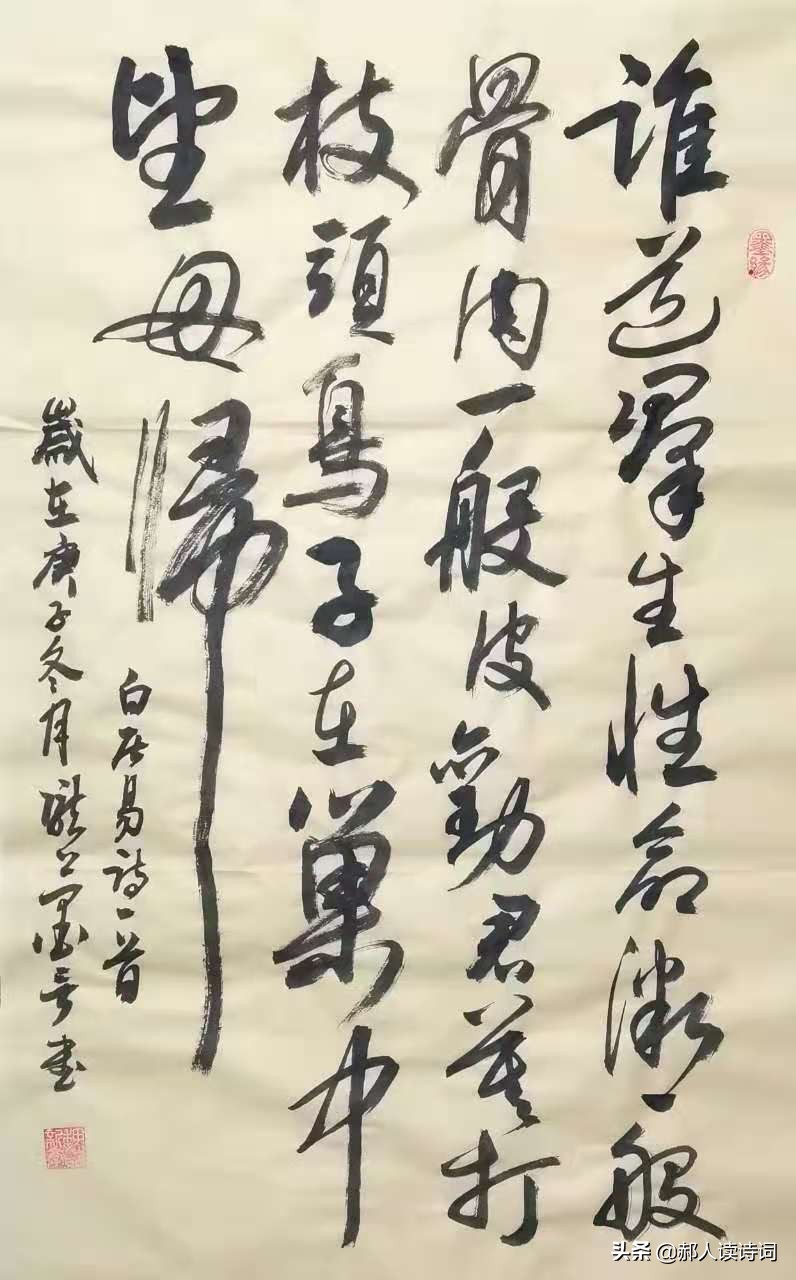 誰道羣生性命微一般
骨肉一般皮勸君莫打
枝頭鳥子在巢中
望母歸
白居易詩一首
歲在庚子冬月書
墨緣
头条 @郝人读诗词